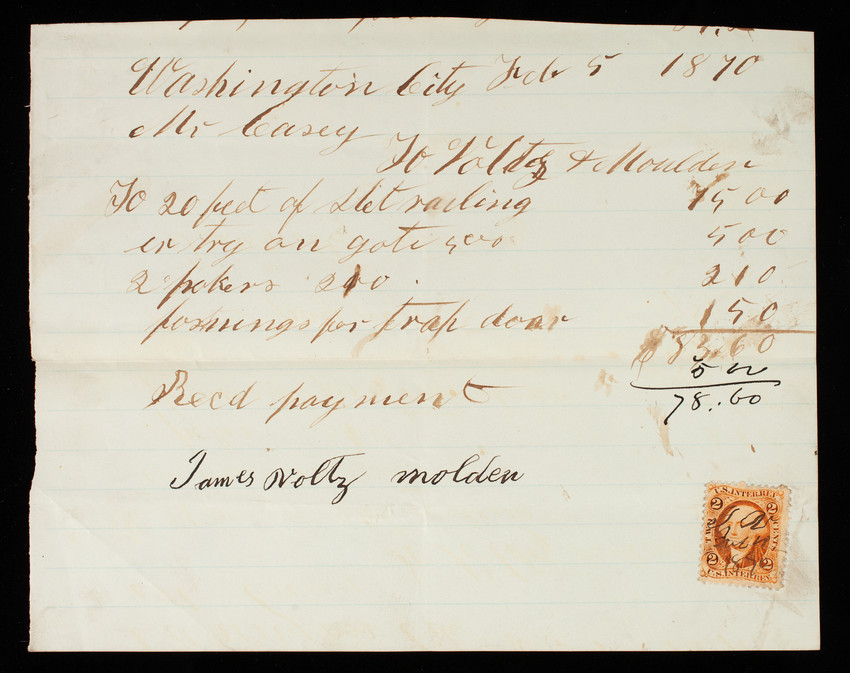 Washington City Feb 5 1870
Mr Casey
To Voltz & Moulden
To 20 feet of railing 75 00
on gate 500 500
2 pokers 210 210
for trap door 150
$ 83.60
5 00
78.60
Recd payment
James Voltz molden
U.S. INTER. REV.
2 2
TWO CENTS
2 2
U.S. INTER. REV.